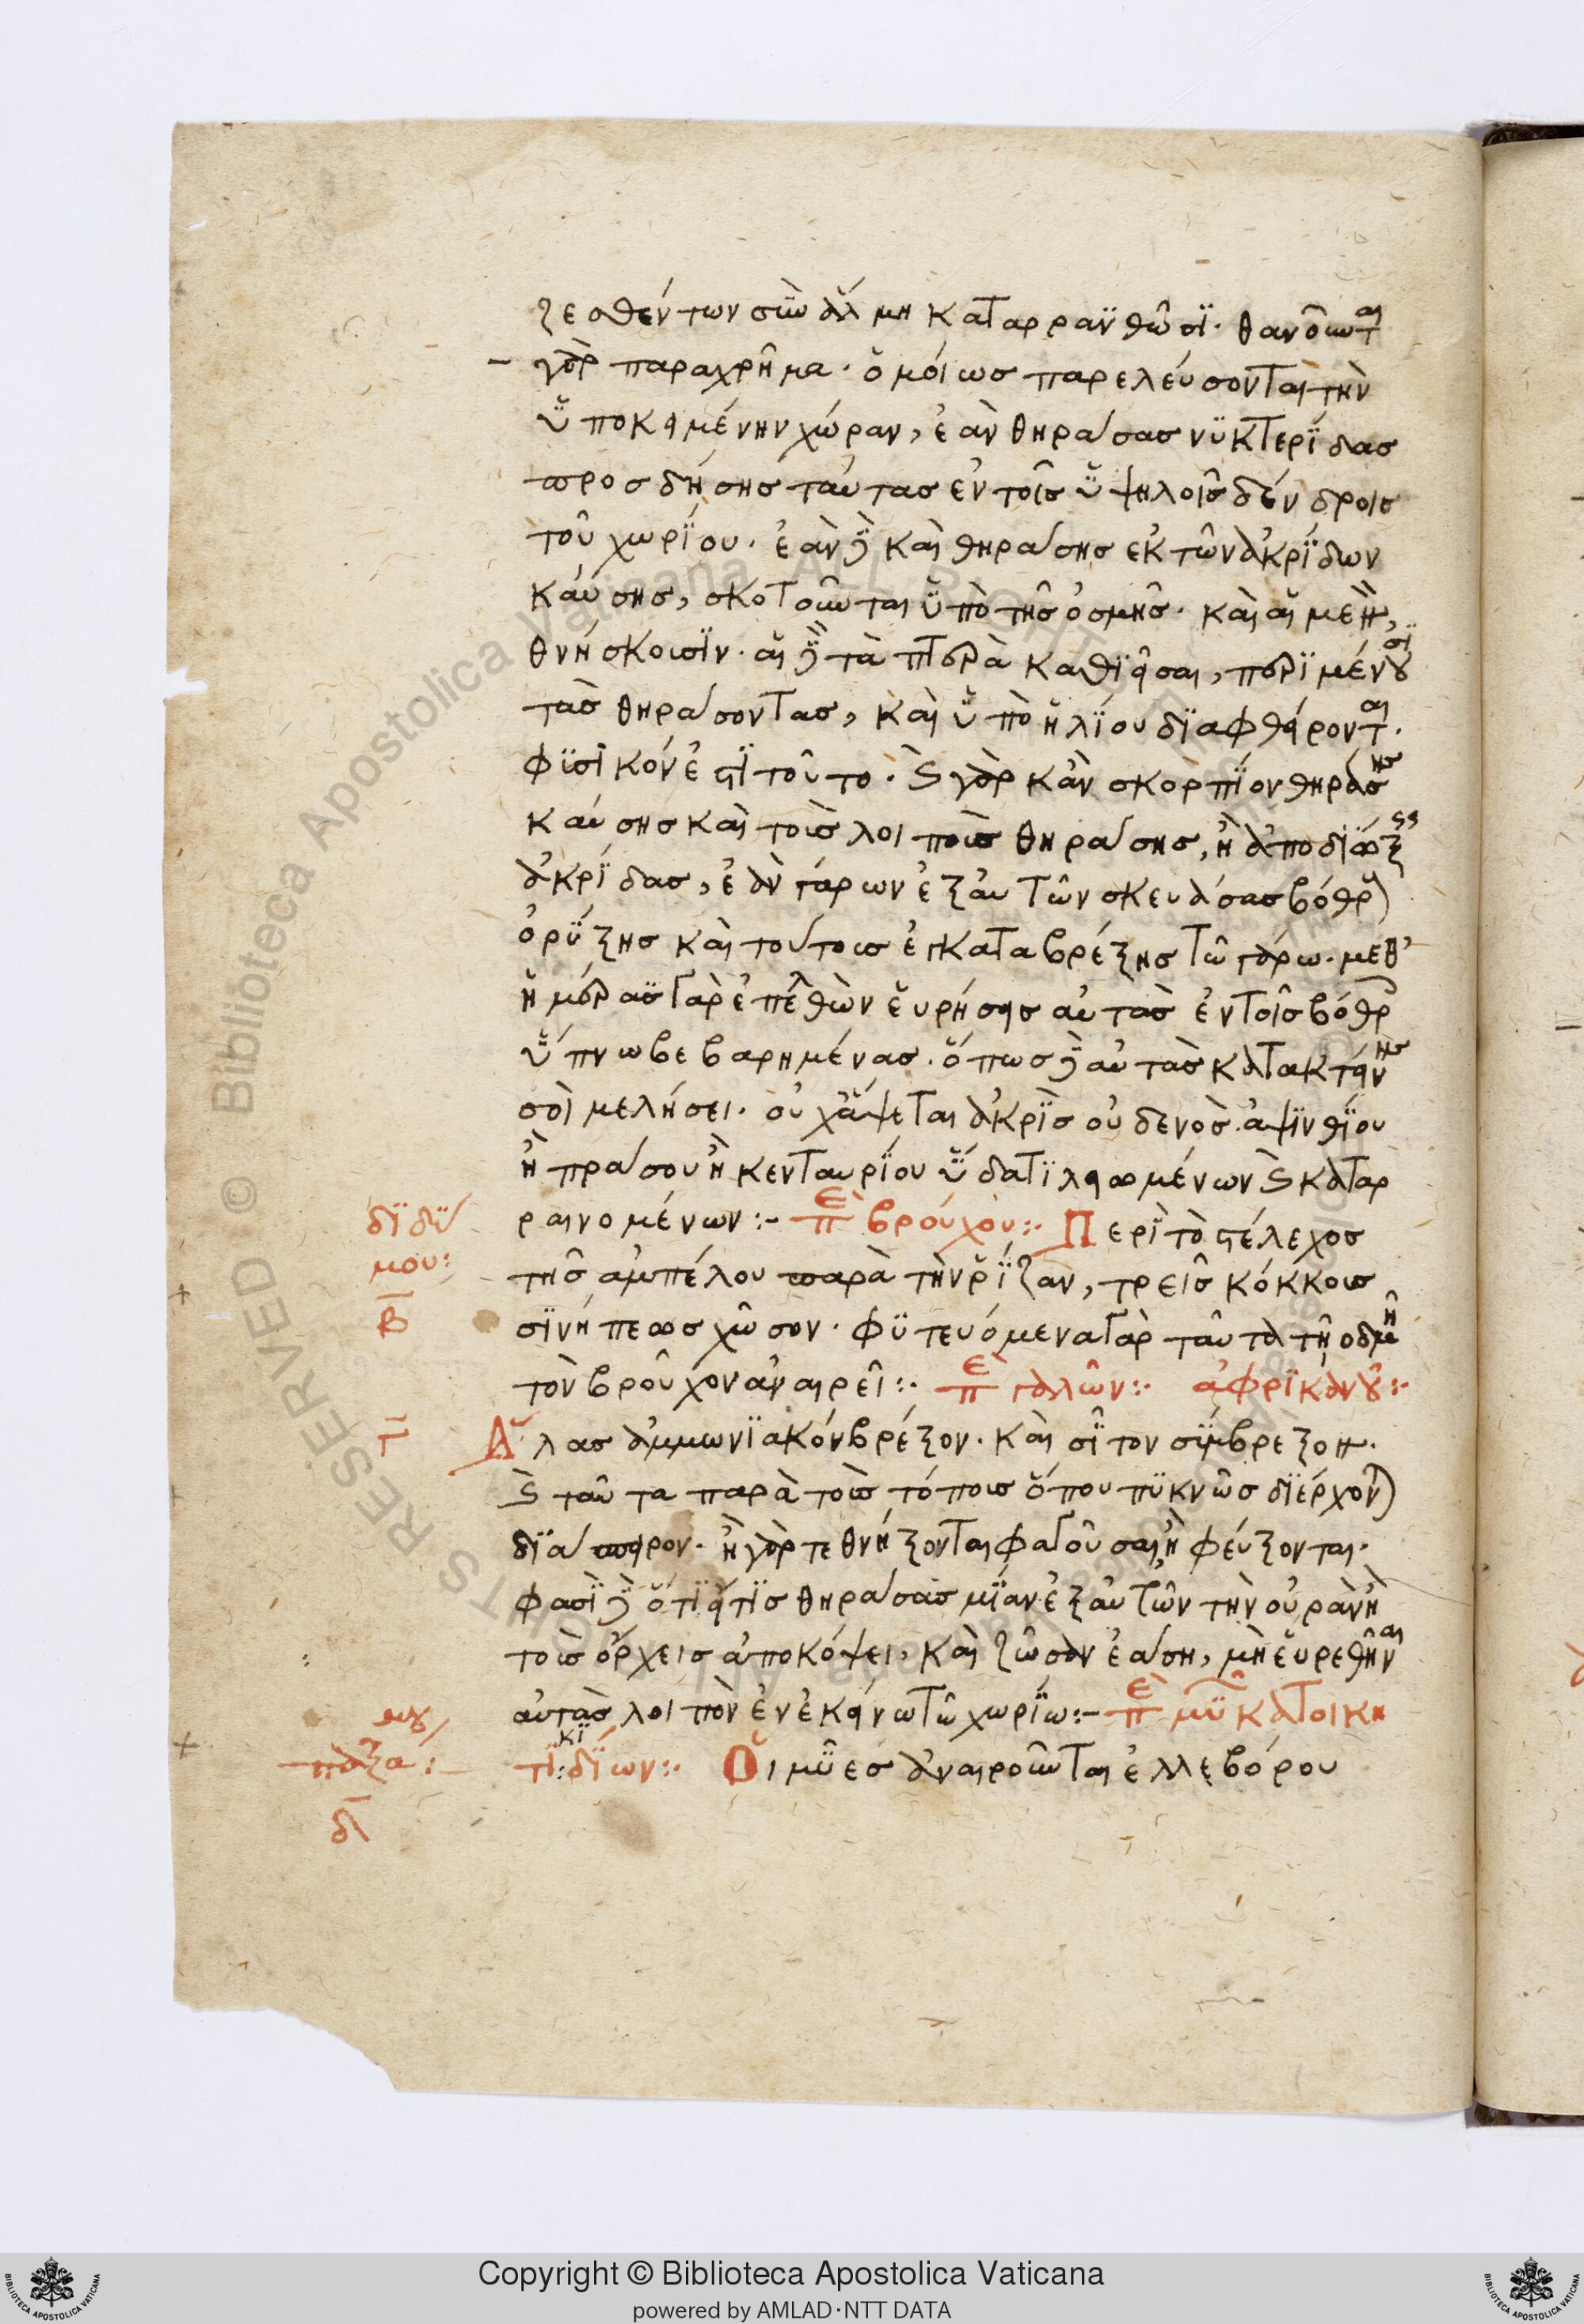 ζεσθέντων σὺν ἅλμη καταρρανθῶσι· θανοῦνται
γὰρ παραχρῆμα· ὁμοίως παρελεύσονται τὴν
ὑποκειμένην χώραν, ἐὰν θηράσας νυκτερίδας
προσδήσης ταύτας ἐν τοῖς ὑψηλοῖς δένδροις
τοῦ χωρίου. ἐὰν δὲ καὶ θηράσης ἐκ τῶν ἀκρίδων
καύσης, σκοτοῦνται ὑπὸ τῆς ὀσμῆς. καὶ αἱ μὲν,
θνήσκουσιν. αἱ δὲ τὰ πτερὰ καθιεῖσαι, περιμένουσι
τὰς θηράσοντας, καὶ ὑπὸ ἡλίου διαφθείρονται.
φυσικόν ἐστι τοῦτο. καὶ γὰρ κἂν σκορπίον θηράσης
καύσης καὶ τοῖς λοιποῖς θηράσης, ἢ ἀποδιώξεις
ἀκρίδας, ἐὰν γάρων ἐξ αὐτῶν σκευάσας βόθρους
ὀρύξης καὶ τούτοις ἐγκαταβρέξης τῶ γάρω. μεθ'
ἡμέρας γὰρ ἐπελθὼν εὑρήσεις αὐτὰς ἐν τοῖς βόθροις
ὕπνω βεβαρημένας. ὅπως δὲ αὐτὰς κατακτείνης
σοὶ μελήσει. οὐχ ἅψεται ἀκρὶς οὐδενὸς. ἀψινθίου
ἢ πράσου ἢ κενταυρίου ὕδατι λειωμένων καὶ καταρ
ραινομένων :- περὶ βρούχου :· Περὶ τὸ στέλεχος
διδύ
μου :
τῆς ἀμπέλου παρὰ τὴν ρίζαν, τρεῖς κόκκους
β
σινήπεως χῶσον. φυτευόμενα γὰρ ταῦτα τῆ ὀδμῆ
τὸν βροῦχον ἀναιρεῖ :· περὶ γαλῶν :· ἀφρικανοῦ :·
γ
Ἅλας ἀμμωνιακόν βρέξον. καὶ σῖτον σύμβρεξον.
καὶ ταῦτα παρὰ τοῖς τόποις ὅπου πυκνῶς διέρχονται
διάσπειρον. ἢ γὰρ τεθνήξονται φαγοῦσαι ἢ φεύξονται.
φασὶ δὲ ὅτι εἴ τις θηράσας μίαν ἐξ αὐτῶν τὴν οὐρὰν ἢ
τοῖς ὄρχεις ἀποκόψει, καὶ ζῶσαν ἐάση, μὴ εὑρεθῆναι
αὐτὰς λοιπὸν ἐν ἐκείνω τῶ χωρίω :- περὶ μυῶν κατοικη
τικιδίων :· Οἱ μῦες ἀναιροῦνται ἐλλεβόρου
παξά
δ
Copyright © Biblioteca Apostolica Vaticana
powered by AMLAD·NTT DATA